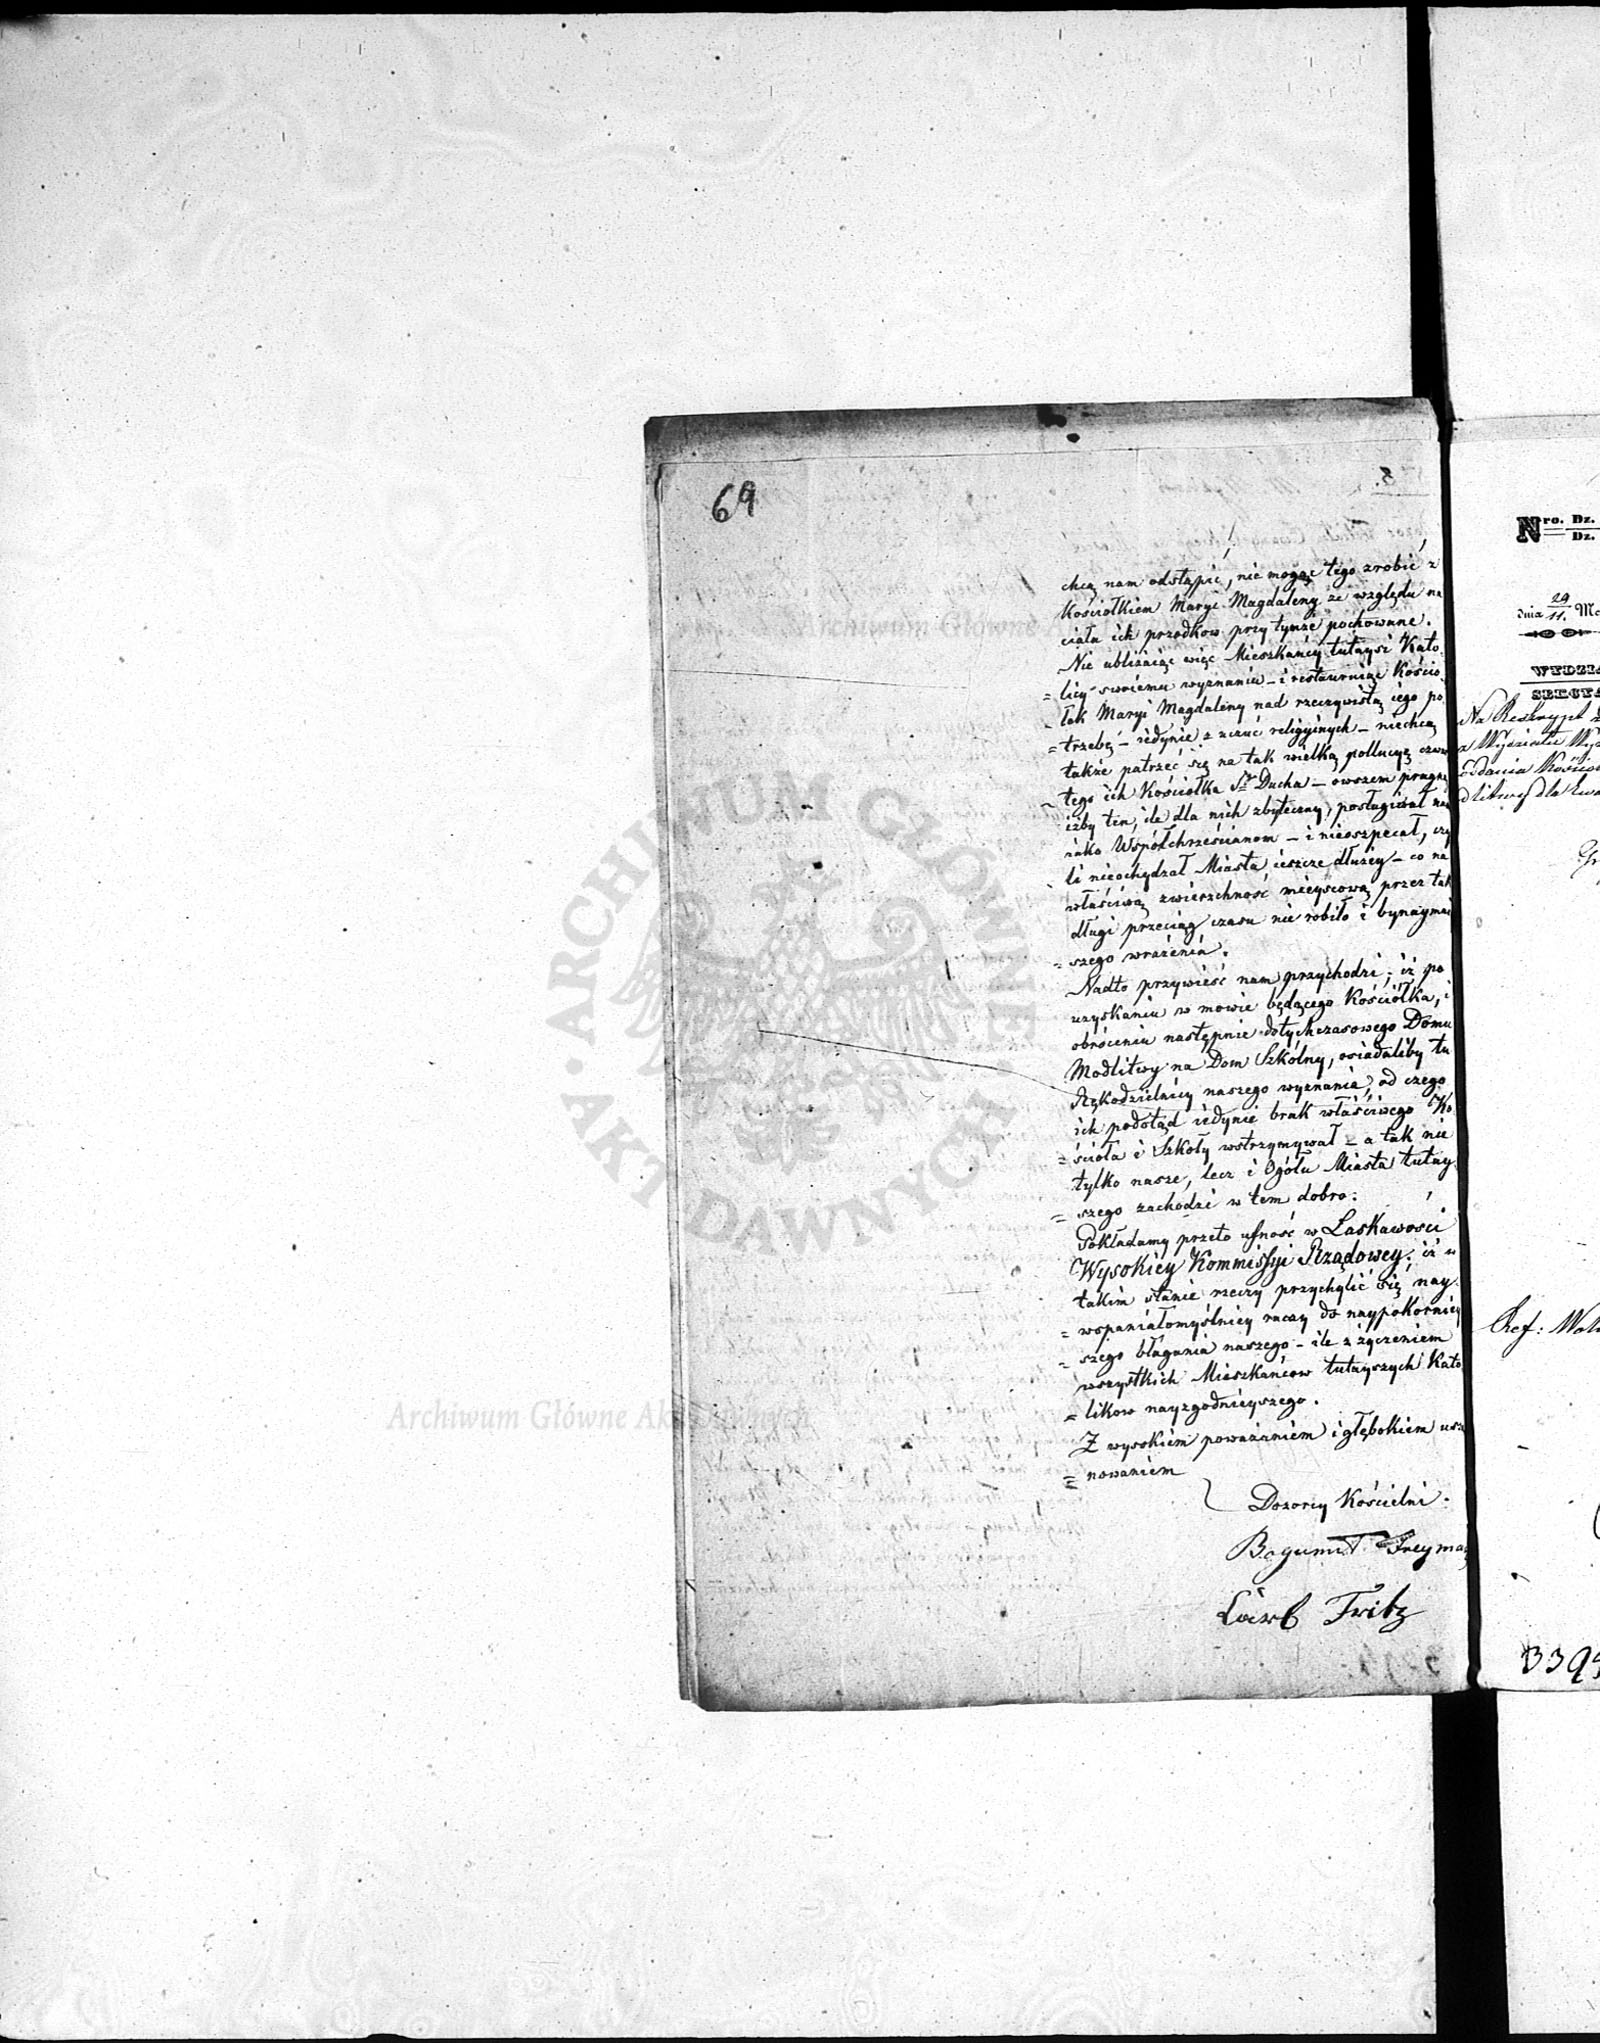 69
chcą nam odstąpić, nie mogąc tego zrobić z
Kościołkiem Maryi Magdaleny ze względu na
ciała ich przodkow przy tymże pochowane.
Nie ubliżaiąc więc Mieszkańcy tutaysi Kato
= licy swoiemu wyznaniu – i restauruiąc Kościo
= łek Maryi Magdaleny nad rzeczywistą iego po
= trzebę – iedynie z uczuć religiynych – niechcą
także patrzéć się na tak wielką pollucyę
tego ich Kościołka Sgo Ducha – owszem pragną
iżby ten, ile dla nich zbyteczny, posługiwał nam
iako Współchrześcianom – i nieoszpecał, czy
li nieochydzał Miasta ieszcze dłużéy – co na
właściwą zwierzchność mieyscową przez tak
długi przeciąg czasu nie robiło i bynaymni
= szego wrażenia.
Nadto przywieść nam przychodzi, iż po
uzyskaniu w mowie będącego Kościołka, i
obróceniu następnie dotychczasowego Domu
Modlitwy na Dom Szkólny, osiadaliby tu
Rękodzielnicy naszego wyznania, od czego
ich podotąd iedynie brak właściwego Ko
= ścioła i Szkoły wstrzymywał – a tak nie
tylko nasze, lecz i Ogółu Miasta tutay
= szego zachodzi w tem dobro:
Pokładamy przeto ufność w Łaskawości
Wysokiéy Kommissyi Rządowey, iż w
takim stanie rzeczy przychylić się nay
= wspaniałomyślniéy raczy do naypokornièy
= szego błagania naszego – ile z życzeniem
wszystkich Mieszkańcow tutayszych Kato
= likow nayzgodnieyszego.
Z wysokiém poważaniem i głębokiem usza
= nowaniem
Dozorcy Kościelni.
Bogumił Freyma
Carl Fritz
Nro. Dz.
Dz.
dnia 29/11.
WYDZIA
SEKCYA
Na Reskrypt
z Wydziału Wyz
oddania Kościo
dlitwy dla Ewa
Ref: Wol
3394
ARCHIWUM GŁÓWNE
AKT DAWNYCH
Archiwum Główne Akt Dawnych